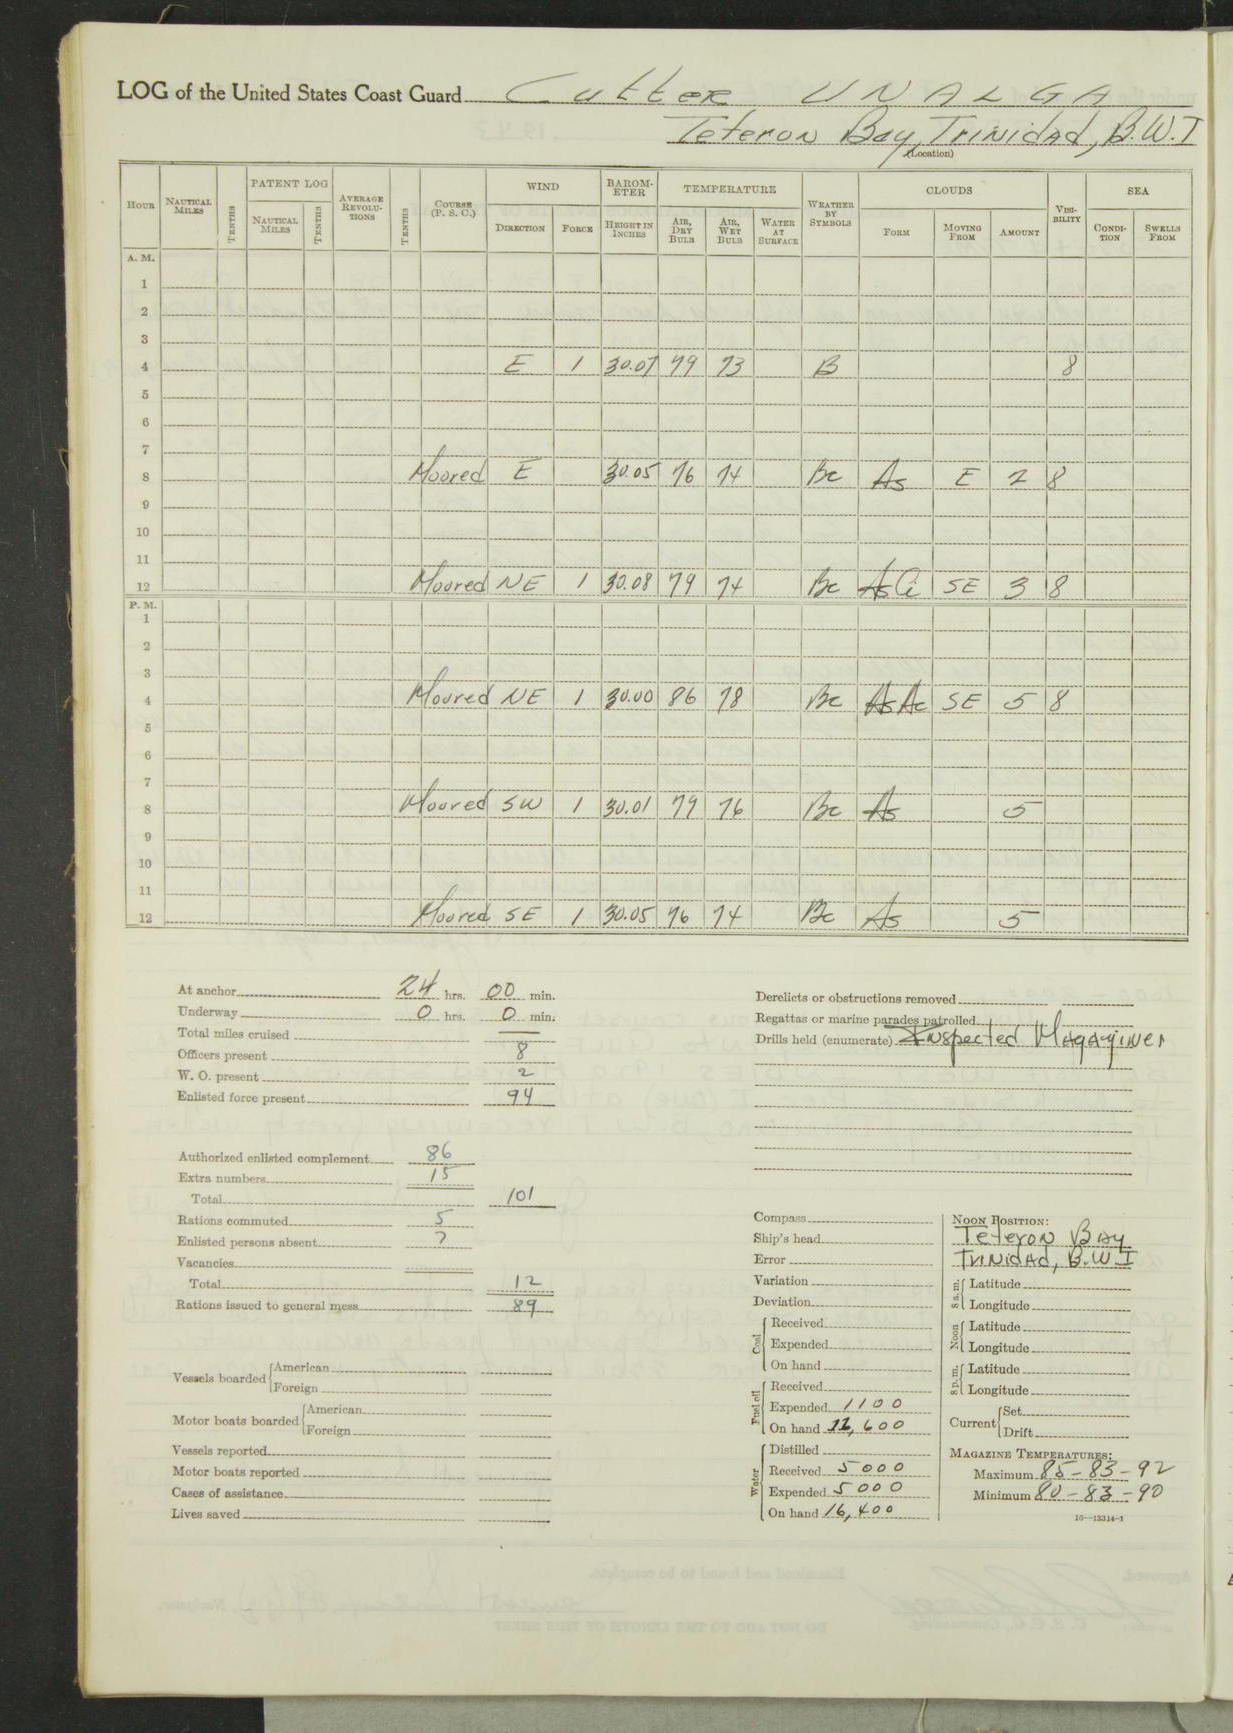 LOG of the United States Coast Guard Cutter UNALGA
Teteron Bay, Trinidad, B.W.I
(Location)
HOUR NAUTICAL MILES TENTHS PATENT LOG NAUTICAL MILES TENTHS AVERAGE REVOLUTIONS TENTHS COURSE (P. S. C.) WIND DIRECTION FORCE BAROMETER HEIGHT IN INCHES TEMPERATURE AIR, DRY BULB AIR, WET BULB WATER AT SURFACE WEATHER BY SYMBOLS CLOUDS FORM MOVING FROM AMOUNT VISIBILITY SEA CONDITION SWELLS FROM
A. M.
1
2
3
4 E 1 30.07 79 73 B 8
5
6
7
8 Moored E 30.05 76 74 Bc As E 2 8
9
10
11
12 Moored NE 1 30.08 79 74 Bc As Ci SE 3 8
P. M.
1
2
3
4 Moored NE 1 30.00 86 78 Bc As Ac SE 5 8
5
6
7
8 Moored SW 1 30.01 79 76 Bc As 5
9
10
11
12 Moored SE 1 30.05 76 74 Bc As 5
At anchor 24 hrs. 00 min.
Underway 0 hrs. 0 min.
Total miles cruised
Officers present 8
W. O. present 2
Enlisted force present 94
Authorized enlisted complement 86
Extra numbers 15
Total 101
Rations commuted 5
Enlisted persons absent 7
Vacancies
Total 12
Rations issued to general mess 89
Vessels boarded American
Foreign
Motor boats boarded American
Foreign
Vessels reported
Motor boats reported
Cases of assistance
Lives saved
Derelicts or obstructions removed
Regattas or marine parades patrolled
Drills held (enumerate) Inspected Magazines
Compass
Ship's head
Error
Variation
Deviation
Coal Received
Expended
On hand
Fuel oil Received
Expended 1100
On hand 11,600
Water Distilled
Received 5000
Expended 5000
On hand 16,400
NOON POSITION:
Teteron Bay
Trinidad, B.W.I
8 a. m. Latitude
Longitude
Noon Latitude
Longitude
8 p. m. Latitude
Longitude
Current Set
Drift
MAGAZINE TEMPERATURES:
Maximum 85-83-92
Minimum 80-83-90
16—13314-1